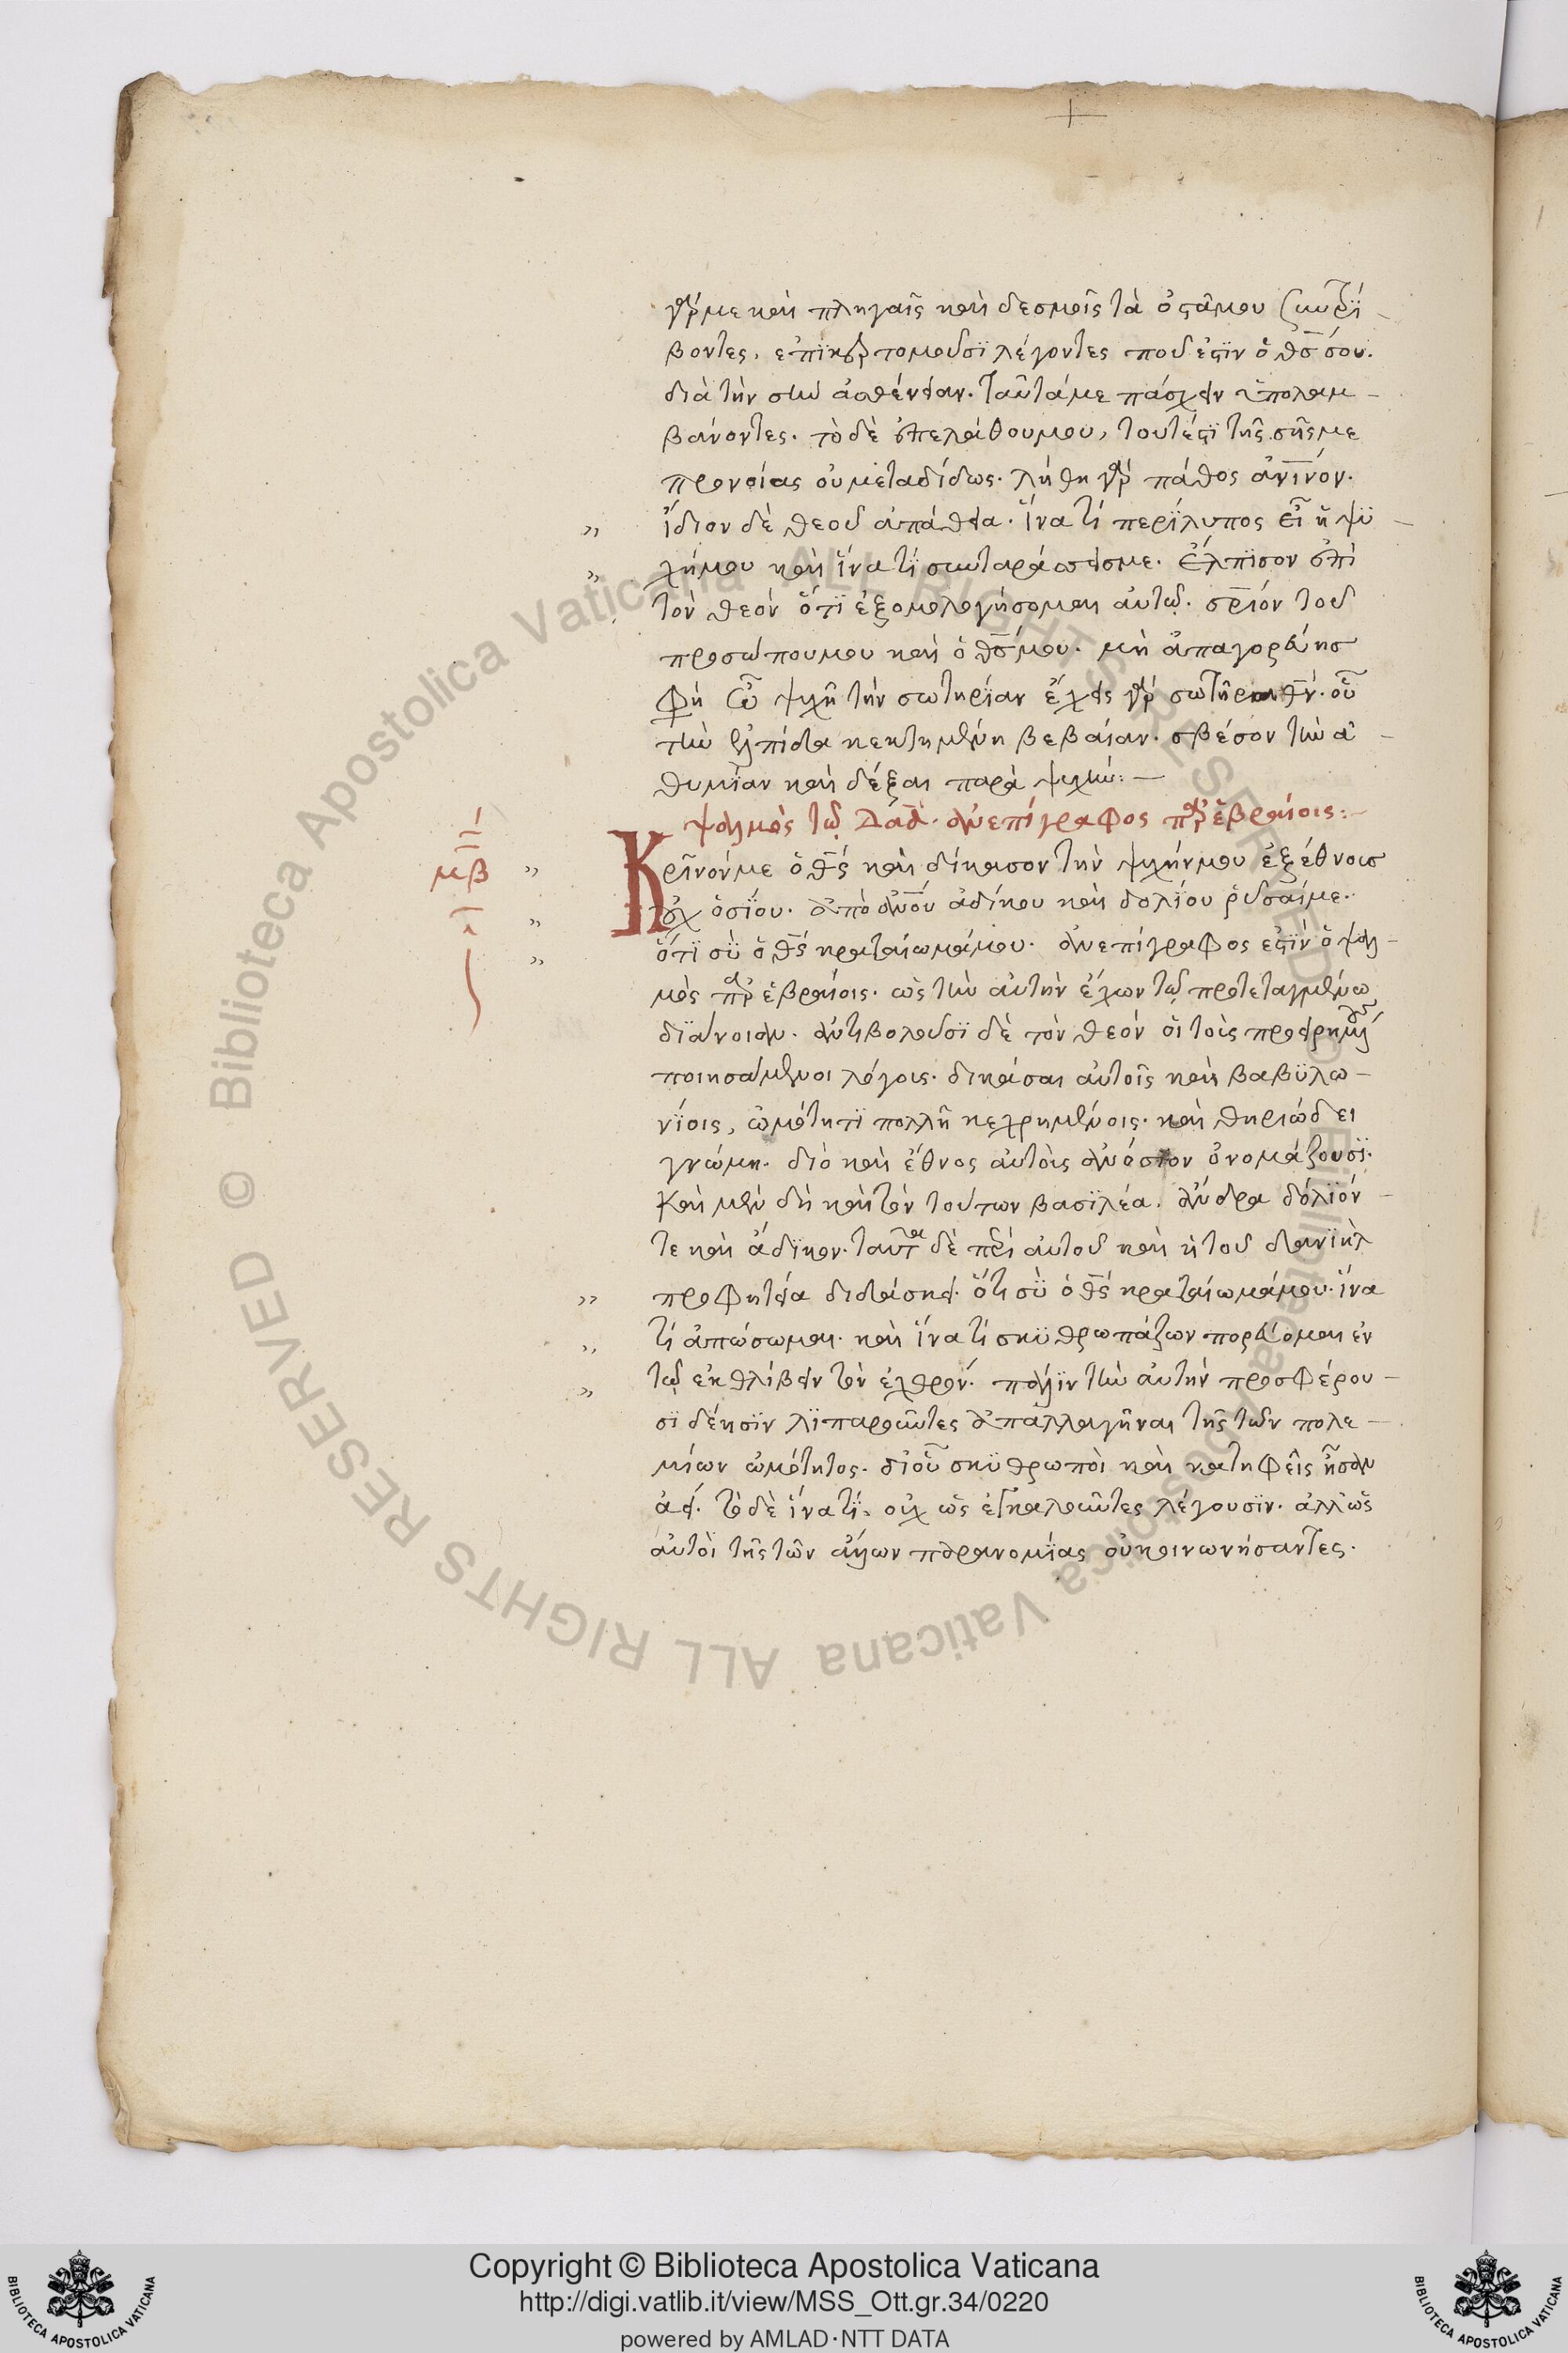 γάρ με καὶ πληγαῖς καὶ δεσμοῖς τὰ ὀστᾶ μου συντρί
βοντες, ἐπικερτομοῦσι λέγοντες ποῦ ἐστιν ὁ θς σου.
διὰ τὴν σὴν ἀσθένειαν. ταῦτά με πάσχειν ὑπολαμ
βάνοντες. τὸ δὲ ἐπελάθου μου, τουτέστι τῆς σῆς με
προνοίας οὐ μεταδίδως. λήθη γὰρ πάθος ἀνινόν.
" ἴδιον δὲ θεοῦ ἀπάθεια. ἵνα τί περίλυπος εἶ ἡ ψυ
" χή μου καὶ ἵνα τί συνταράσσεις με. ἔλπισον ἐπὶ
τὸν θεόν ὅτι ἐξομολογήσομαι αὐτῷ. σριόν τοῦ
προσώπου μου καὶ ὁ θς μου. μὴ ἀπαγορεύης
φὴ ὦ ψυχὴ τὴν σωτηρίαν ἔχεις γὰρ σωτῆρα θν. οὗ
τὴν ἐλπίδα κεκτημένη βεβαίαν. σβέσον τὴν ἀ
θυμίαν καὶ δέξαι παρὰ ψυχήν:—
ψαλμὸς τῷ Δαδ. ἀνεπίγραφος παρ' ἑβραίοις:—
μβ " Κρῖνόν με ὁ θς καὶ δίκασον τὴν ψυχήν μου ἐξ ἔθνους
" οὐχ ὁσίου. ἀπὸ ἀνου ἀδίκου καὶ δολίου ῥῦσαί με.
" ὅτι σὺ ὁ θς κραταίωμά μου. ἀνεπίγραφος ἐστὶν ὁ ψαλ
μὸς παρ' ἑβραίοις. ὡς τὴν αὐτὴν ἔχων τῷ προτεταγμένω
διάνοιαν. ἀντιβολοῦσι δὲ τὸν θεόν οἱ τοὺς προειρημένους
ποιησάμενοι λόγοις. δικάσαι αὐτοῖς καὶ βαβυλω
νίοις, ὠμότητι πολλῆ κεχρημένοις. καὶ θηριώδει
γνώμη. διὸ καὶ ἔθνος αὐτοὺς ἀνόσιον ὀνομάζουσι.
Καὶ μὲν δὴ καὶ τὸν τούτων βασιλέα. ἄνδρα δόλιόν
τε καὶ ἄδικον. ταῦτα δὲ περὶ αὐτοῦ καὶ ἡ τοῦ δανιὴλ
" προφητεία διδάσκει. ὅτι σὺ ὁ θς κραταίωμά μου. ἵνα
" τί ἀπώσω με. καὶ ἵνα τί σκυθρωπάζων πορεύομαι ἐν
" τῷ ἐκθλίβειν τὸν ἐχθρόν. πάλιν τὴν αὐτὴν προσφέρου
σι δέησιν λιπαροῦντες ἀπαλλαγῆναι τῆς τῶν πολε
μίων ὠμότητος. δι' οὗ σκυθρωποὶ καὶ κατηφεῖς ἦσαν
ἀεί. τὸ δὲ ἵνα τί. οὐχ ὡς ἐγκαλοῦντες λέγουσιν. ἀλλ' ὡς
αὐτοὶ τῆς τῶν ἄλλων παρανομίας οὐ κοινωνήσαντες.
Copyright © Biblioteca Apostolica Vaticana
http://digi.vatlib.it/view/MSS_Ott.gr.34/0220
powered by AMLAD·NTT DATA